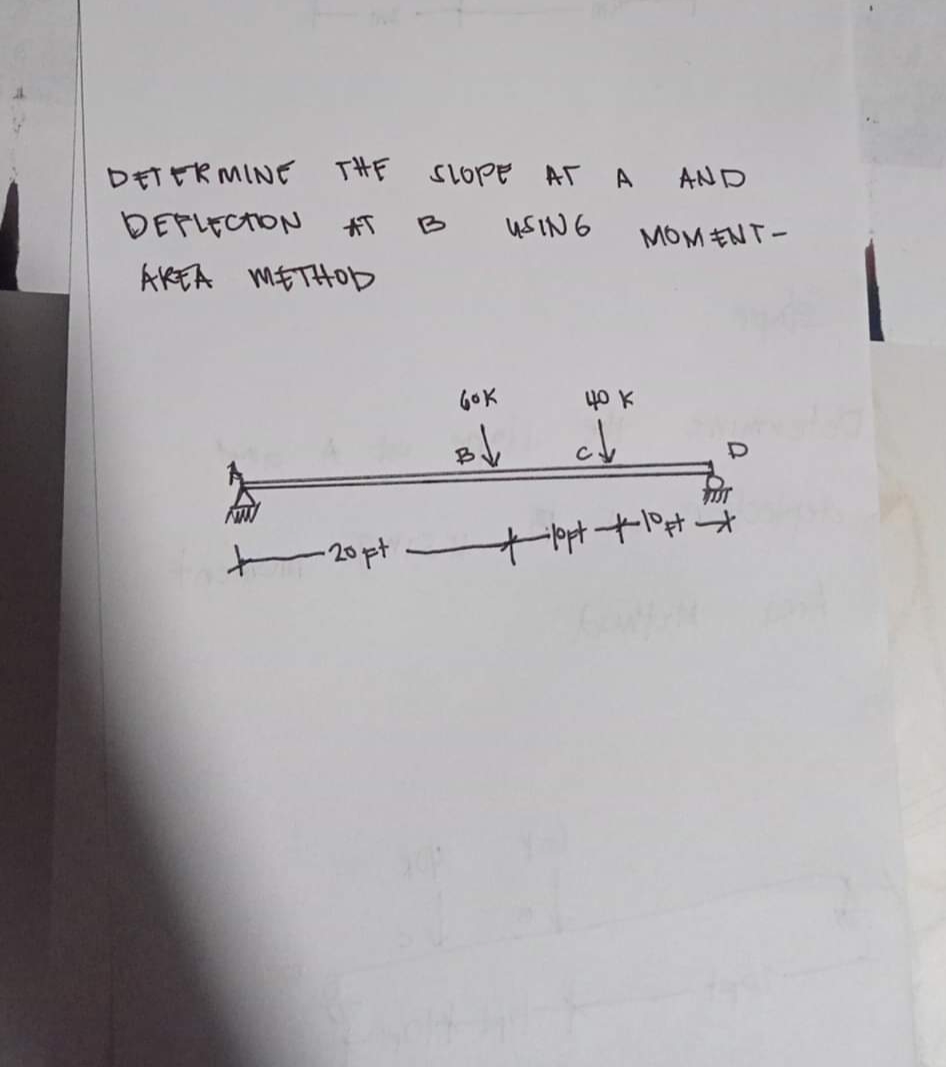 DETERMINE THE SLOPE AT A AND
DEFLECTION AT B USING MOMENT-
AREA METHOD
60K 40 K
A B C D
20 ft 10ft 10 ft